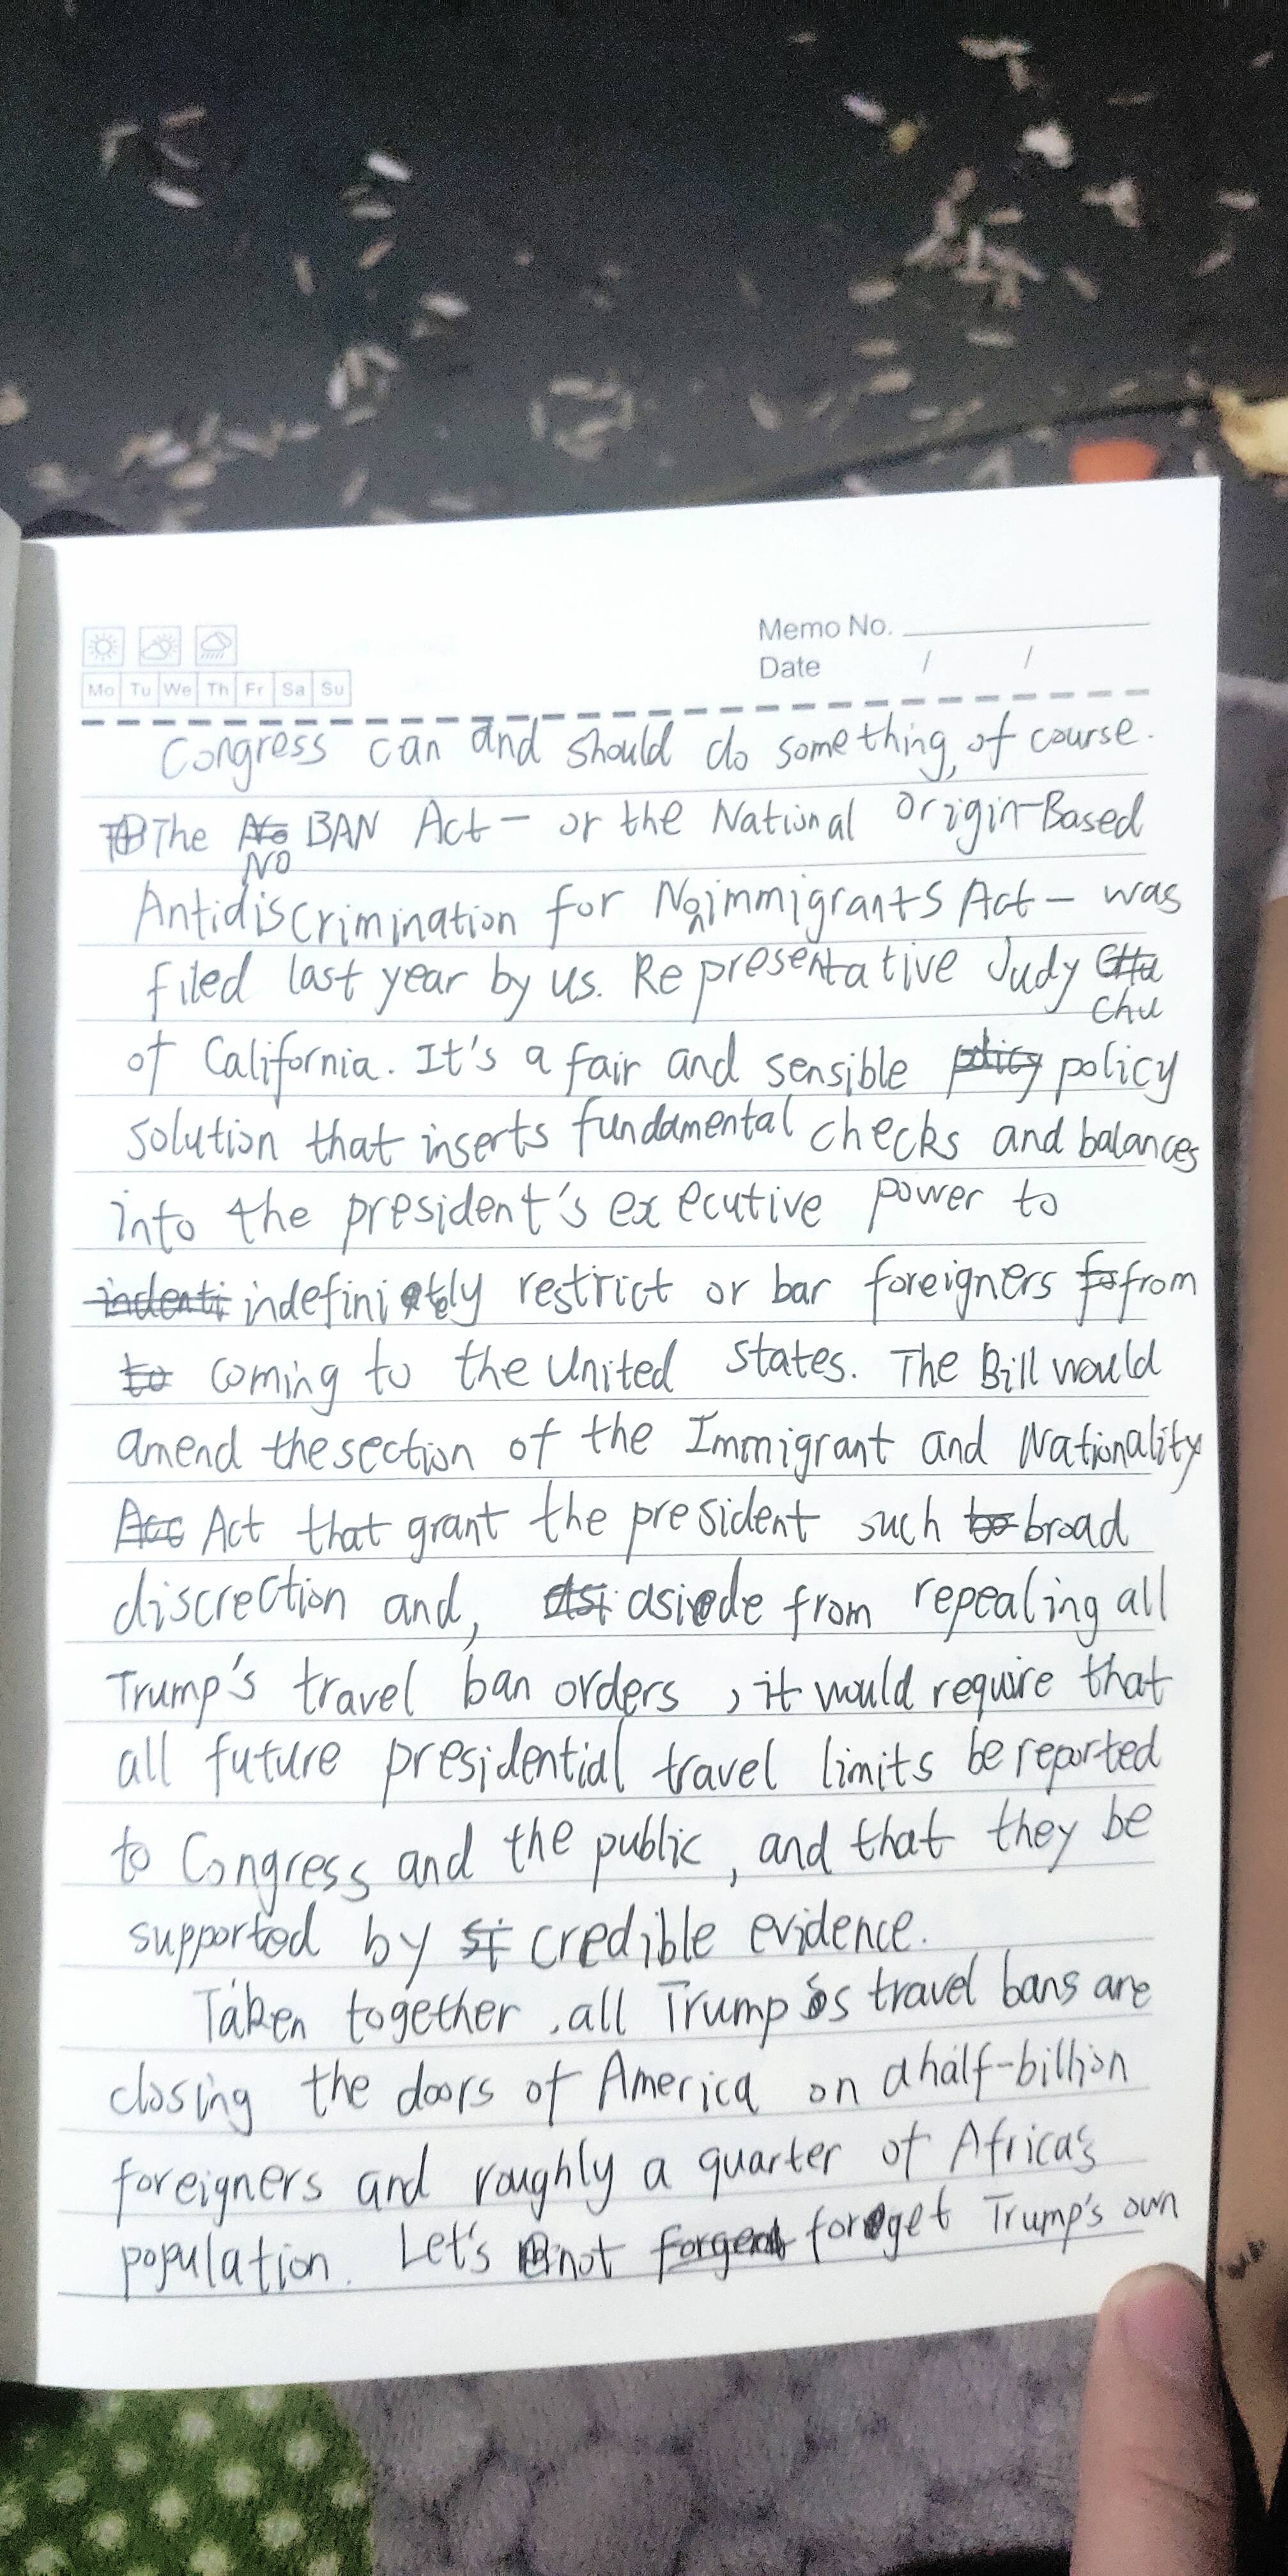 Memo No.
Date / /
Mo Tu We Th Fr Sa Su
Congress can and should do something, of course.
The NO BAN Act - or the National Origin-Based
Antidiscrimination for Nonimmigrants Act - was
filed last year by us. Representative Judy Chu
of California. It's a fair and sensible policy
solution that inserts fundamental checks and balances
into the president's executive power to
indefinitely restrict or bar foreigners from
coming to the United States. The Bill would
amend the section of the Immigrant and Nationality
Act that grant the president such broad
discrection and, aside from repealing all
Trump's travel ban orders, it would require that
all future presidential travel limits be reported
to Congress and the public, and that they be
supported by credible evidence.
Taken together, all Trump's travel bans are
closing the doors of America on a half-billion
foreigners and roughly a quarter of Africa's
population. Let's not forget Trump's own